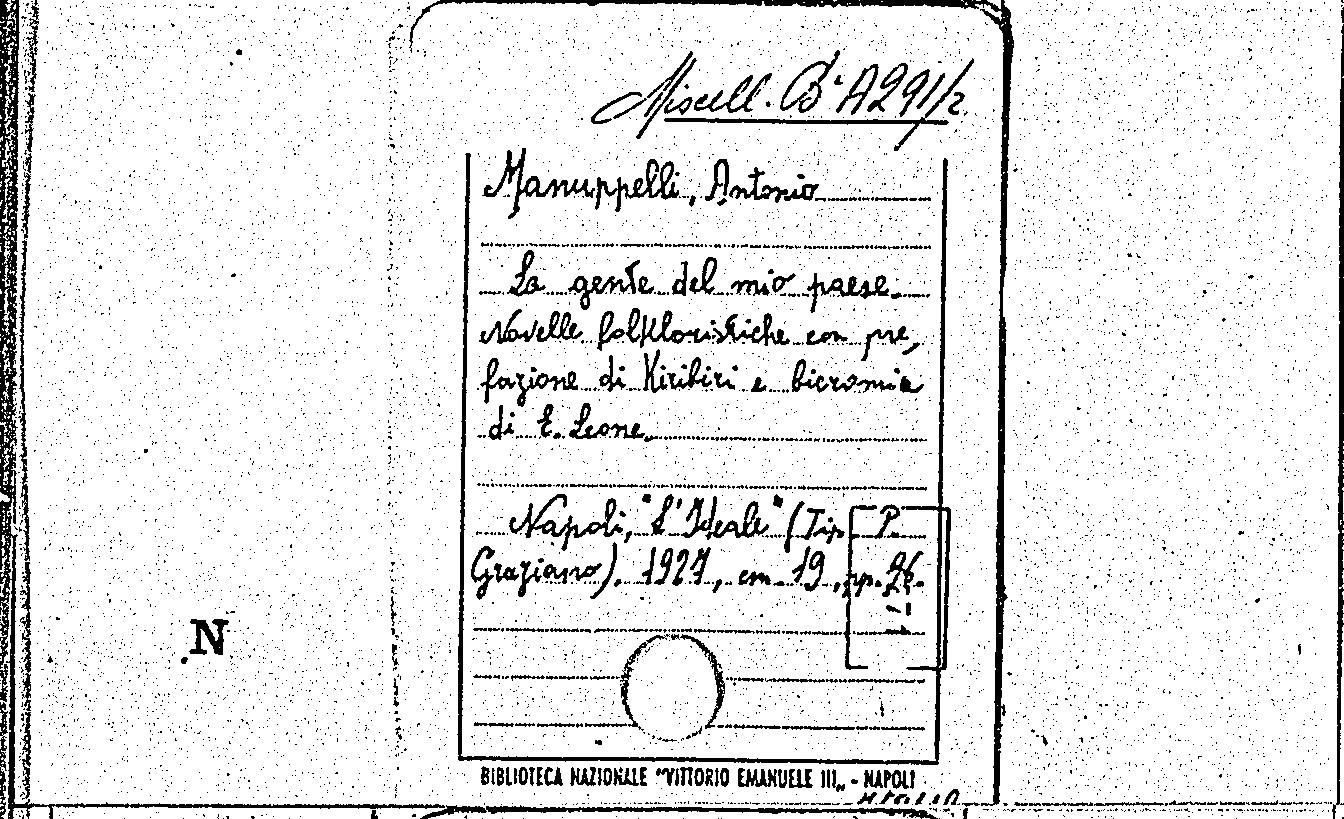 Miscell. Ba A291/2
Manuppelli, Antonio
La gente del mio paese.
Novelle folkloristiche con pre,
fazione di Kiribiri e bicromia
di E. Leone.
Napoli, "L'Ideale" (Tip. P.
Graziano). 1927, cm. 19, pp.
N
BIBLIOTECA NAZIONALE "VITTORIO EMANUELE III„ - NAPOLI